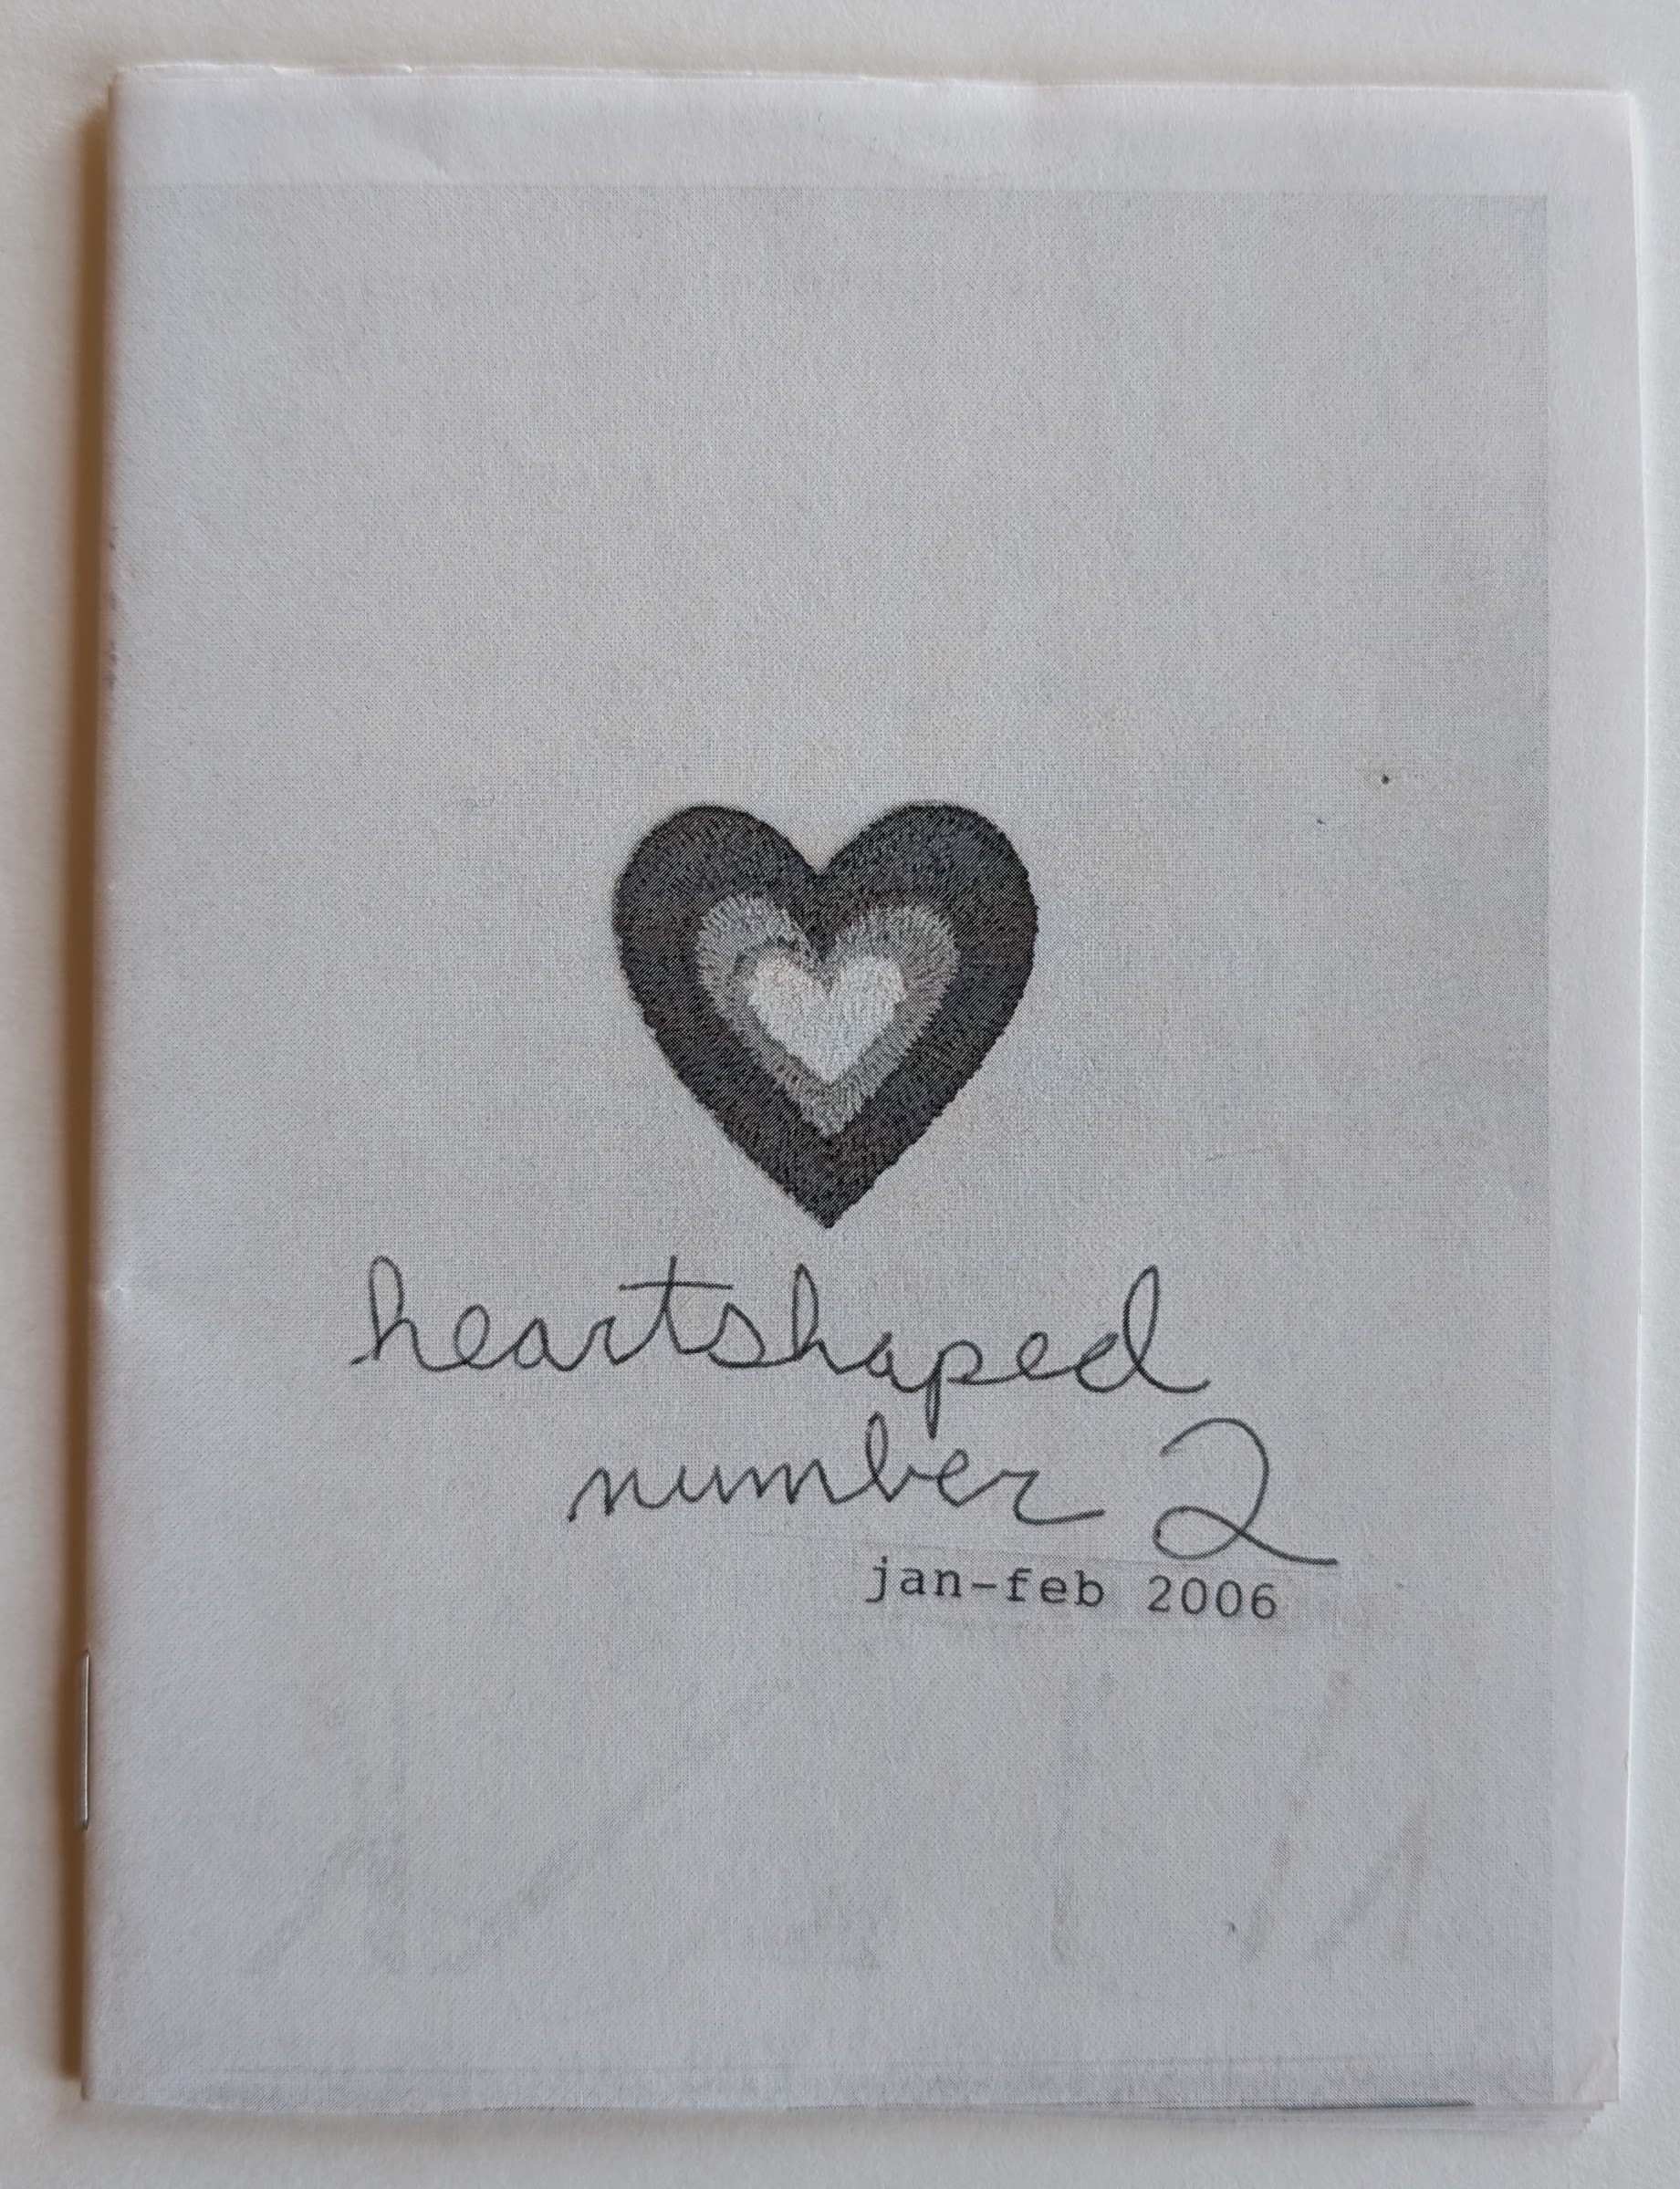 heartshaped
number 2
jan-feb 2006